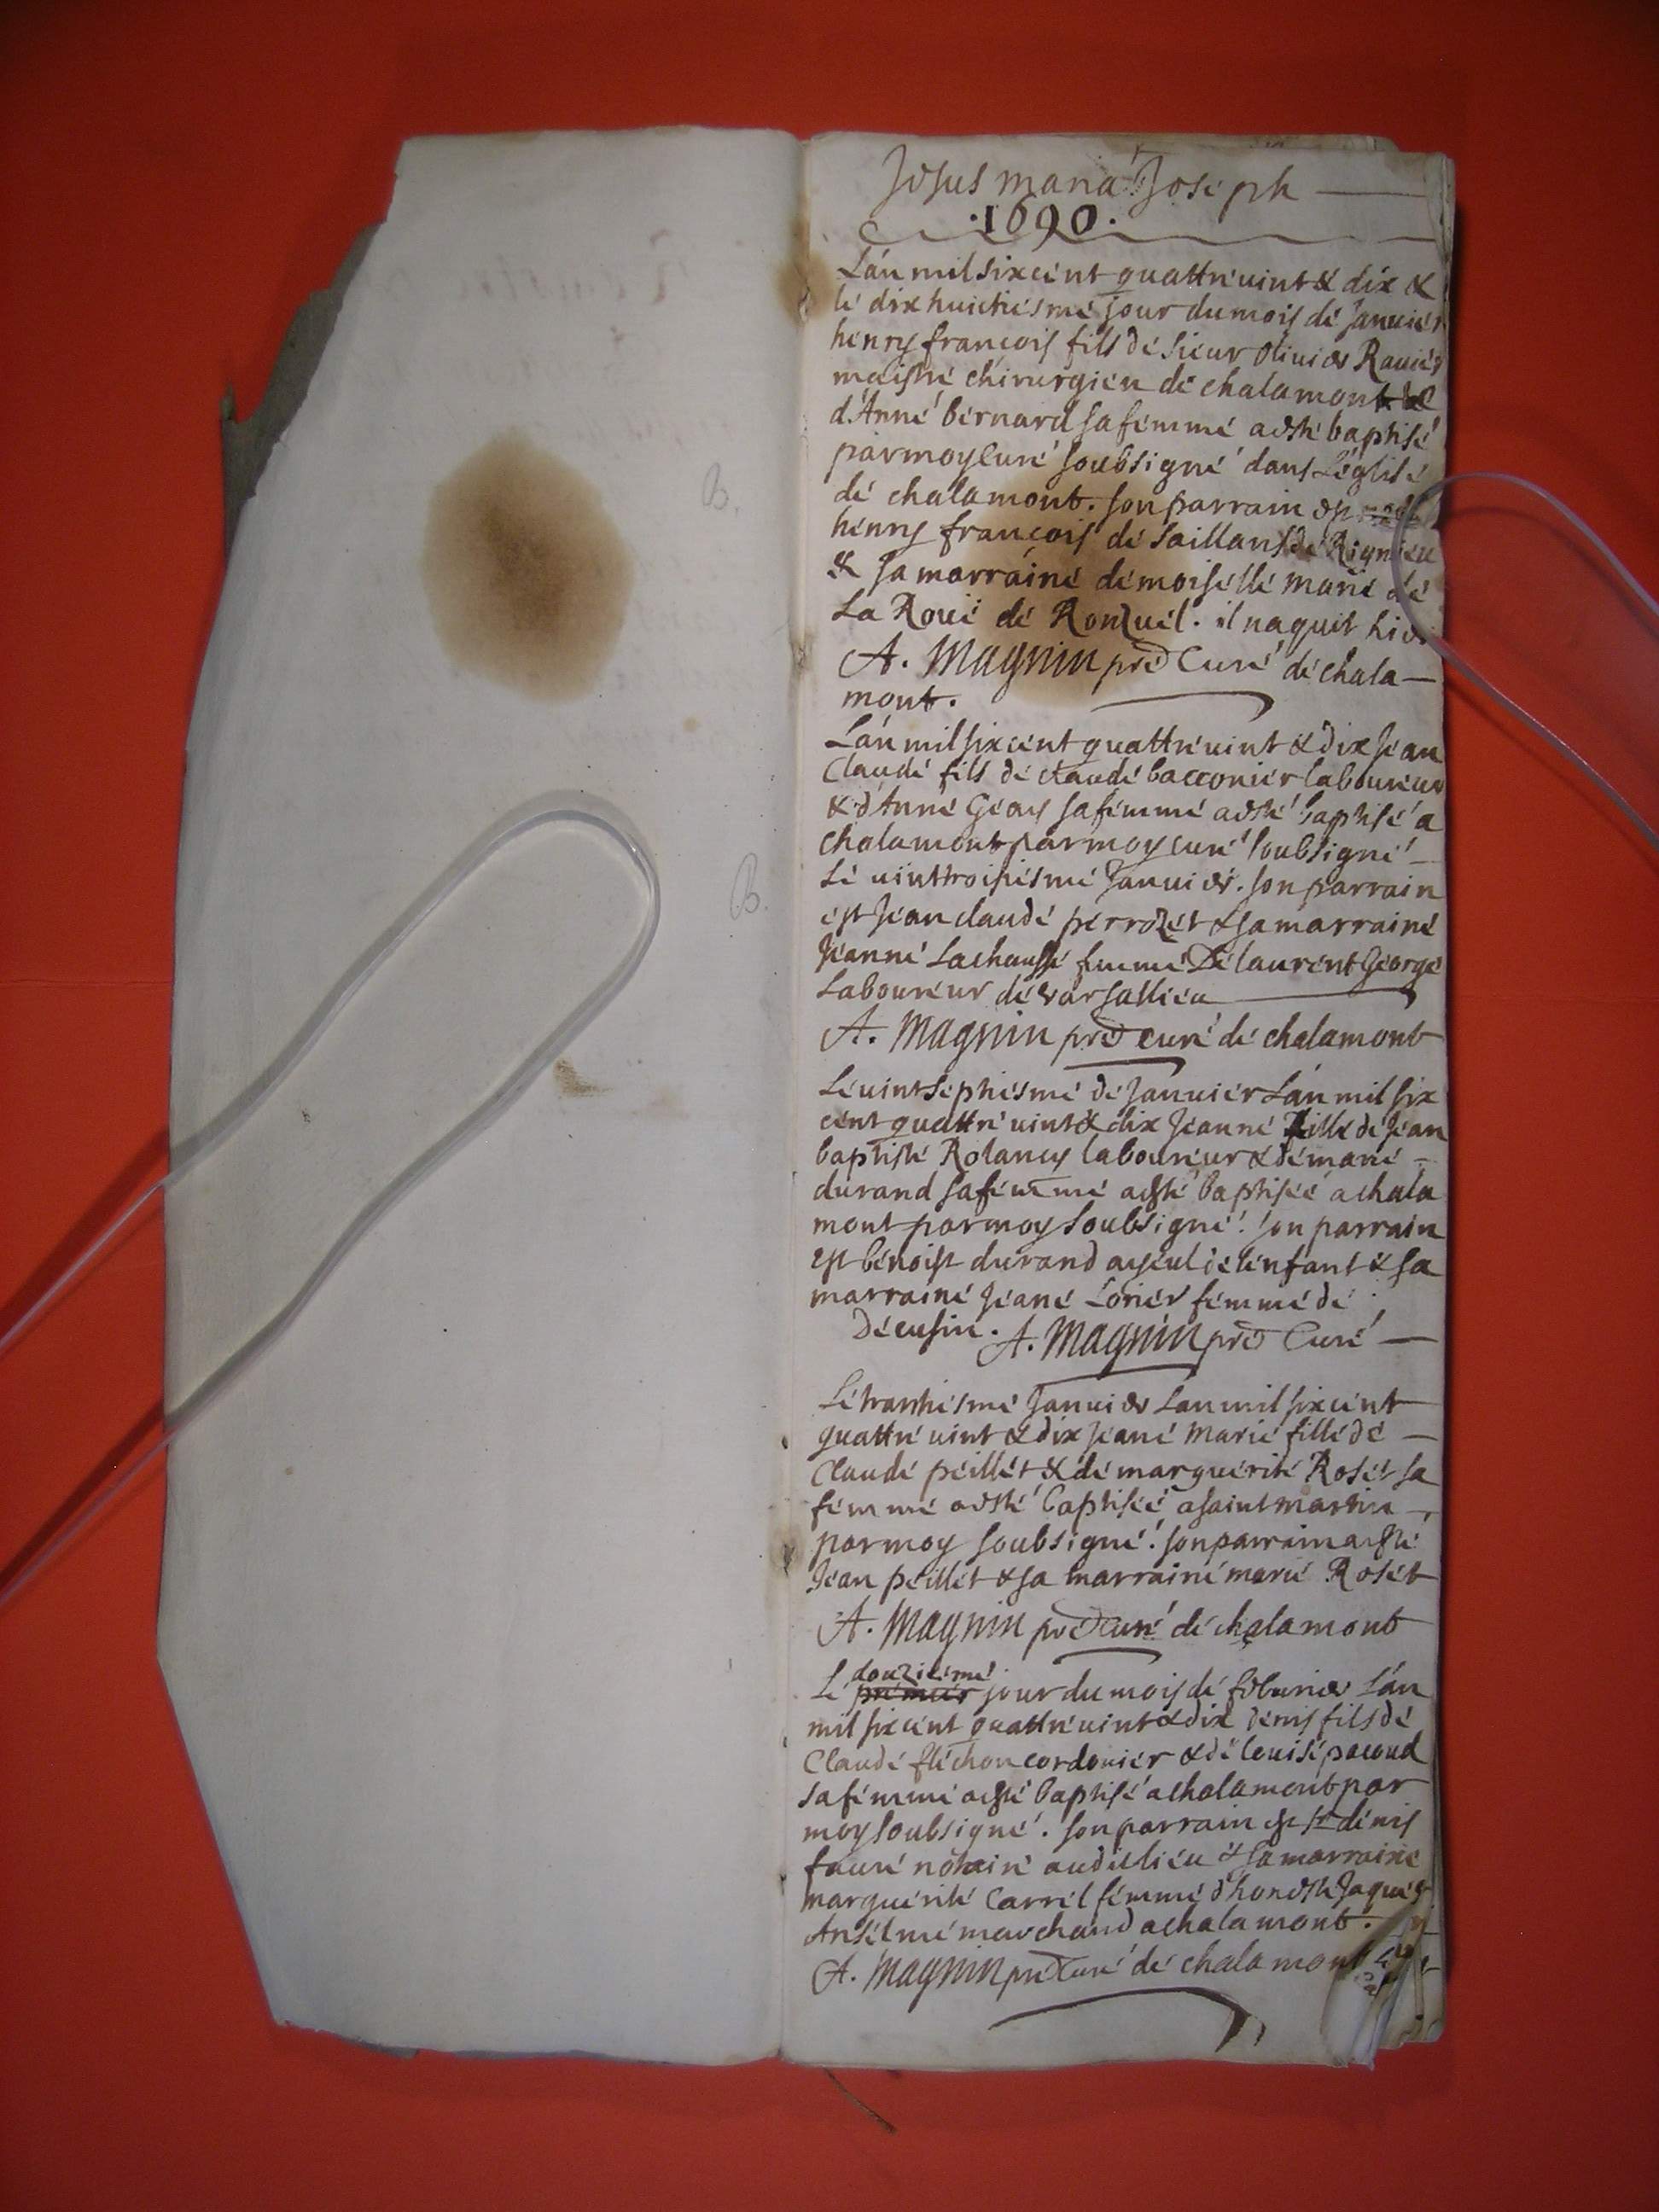 Jesus maria Joseph
.1690.
L'an mil six cent quattre vint & dix &
le dix huictiesme jour du mois de Januier
henry françois fils de sieur Oliuier Rauier
maistre chirurgien de chalamont
d'Anne bernard sa femme a esté baptisé
par moy Curé soubsigné dans L'église
de chalamont. son parrain est
henry françois de Saillans de Rignieu
& sa marraine demoiselle marie de
La Roüe de Ronzuel. il naquit hier
A. Magnin pre Curé de chala-
mont.
L'an mil six cent quattre vint & dix Jean
Claude fils de claude bacconier laboureur
B.
& d'Anne Geay sa femme a esté baptisé a
chalamont par moy curé soubsigné
Le vint troisiesme Januier. son parrain
B.
est Jean claude perrozet & sa marraine
Jeanne Lachausse femme De laurent George
Laboureur de varsallieu
A. Magnin pre curé de chalamont
Le vint septiesme de Januier L'an mil six
cent quattre vint & dix Jeanne fille de Jean
baptiste Rolancy laboureur & de marie
durand sa femme a esté baptisée a chala
mont par moy soubsigné. son parrain
est benoist durand ayeul de l'enfant & sa
marraine Jeane Lorier femme de
decusin. A. Magnin pre Curé
Le trantiesme Januier L'an mil six cent
quattre vint & dix Jeane Marie fille de
Claude peillet & de marguerite Roset sa
femme a esté baptisée a saint martin
par moy soubsigné. son parrain a esté
Jean peillet & sa marraine marie Roset
A. Magnin pre curé de chalamont
douziéme
Le premier jour du mois de feburier L'an
mil six cent quattre vint & dix denis fils de
Claude fléchon cordonier & de louise pacoud
sa femme a esté baptisé a chalamont par
moy soubsigné. son parrain est sr denis
faure notaire audit lieu & sa marraine
marguerite Carrel femme d'honeste Jaques
Anselme marchand a chalamont.
A. Magnin pre Curé de chalamont